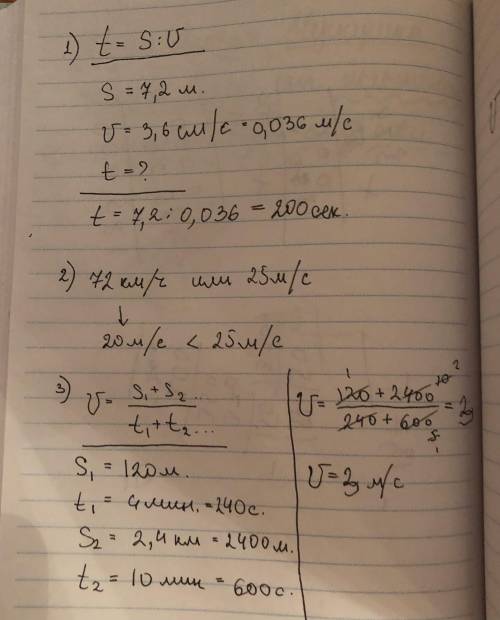 1) t = S : υ
S = 7,2 м.
υ = 3,6 см/с = 0,036 м/с
t = ?
t = 7,2 : 0,036 = 200 сек.
2) 72 км/ч или 25 м/с
↓
20 м/с < 25 м/с
3) υ = S₁ + S₂ ... / t₁ + t₂ ...
S₁ = 120 м.
t₁ = 4 мин. = 240 с.
S₂ = 2,4 км = 2400 м.
t₂ = 10 мин = 600 с.
υ = 120 + 2400 / 240 + 600 = 3
υ = 3 м/с